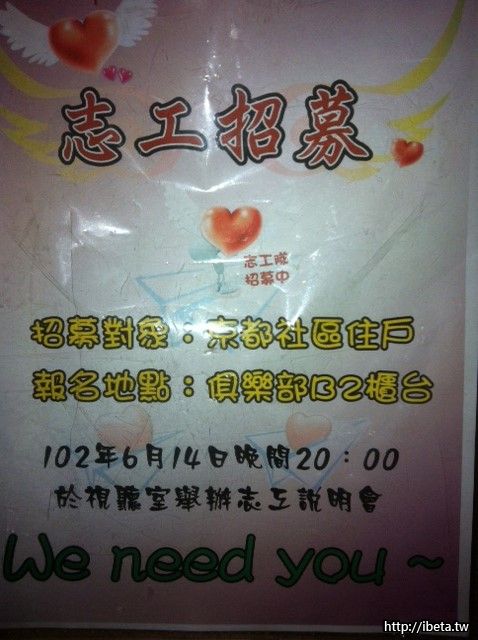 志工招募
志工隊
招募中
招募對象：京都社區住戶
報名地點：俱樂部B2櫃台
102年6月14日晚間20：00
於視聽室舉辦志工說明會
We need you ~
http://ibeta.tw